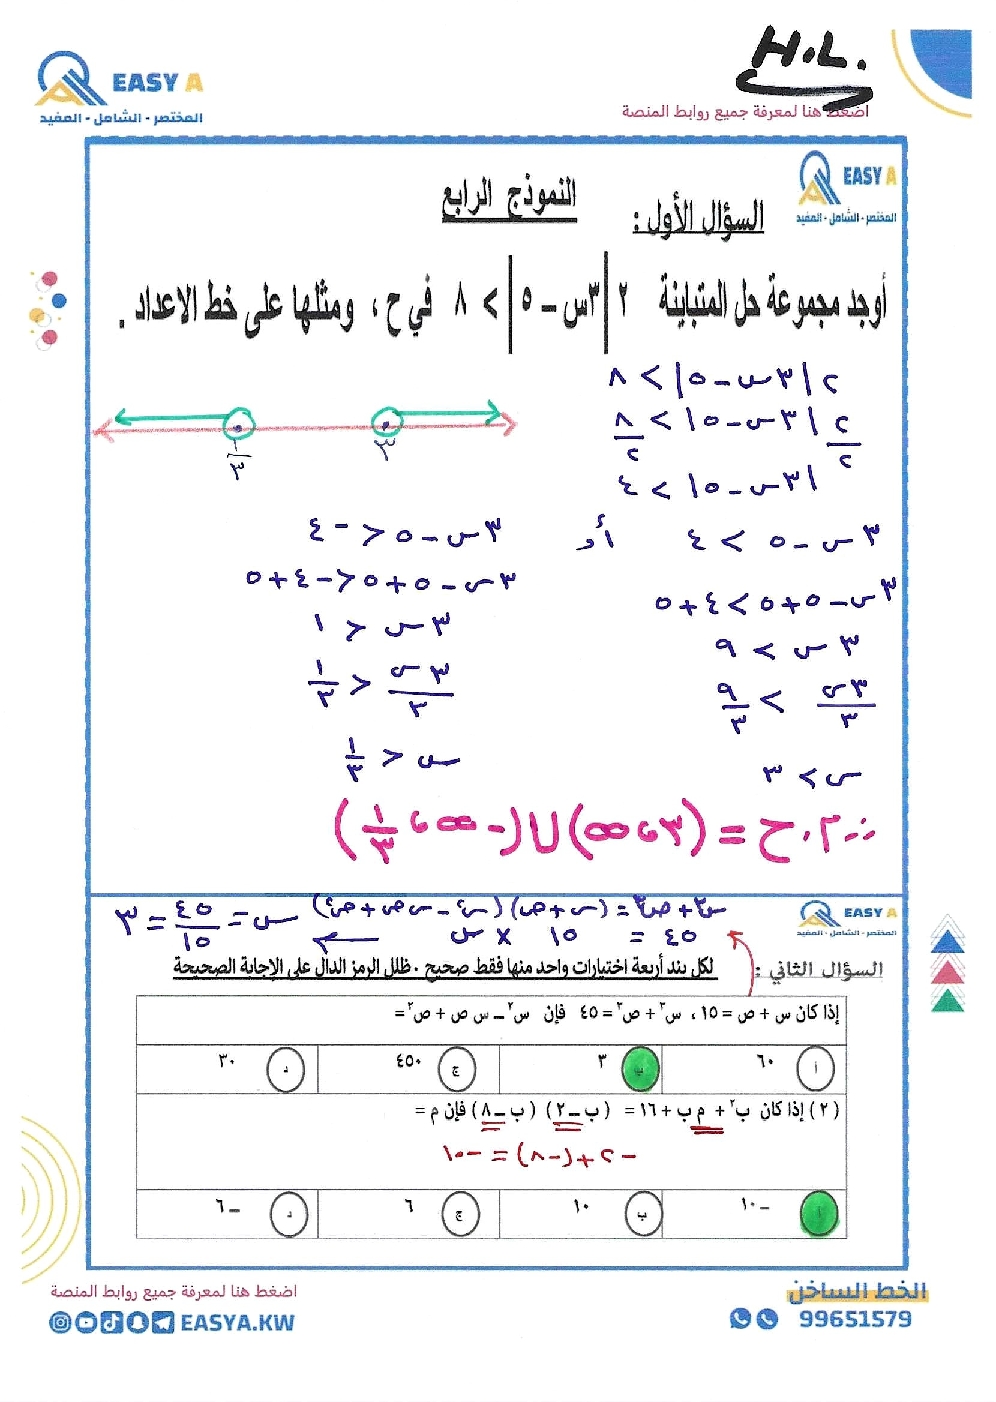 H.L.
EASY A
المختصر - الشامل - المفيد
اضغط هنا لمعرفة جميع روابط المنصة
EASY A
المختصر - الشامل - المفيد
النموذج الرابع
السؤال الأول :
أوجد مجموعة حل المتباينة ٢ |٣س – ٥| > ٨ في ح ، ومثلها على خط الاعداد .
٢ |٣س – ٥| > ٨
٢/٢ |٣س – ٥| > ٨/٢
|٣س – ٥| > ٤
٣س – ٥ > ٤ أو ٣س – ٥ < -٤
٣س – ٥ + ٥ > ٤ + ٥
٣س – ٥ + ٥ < -٤ + ٥
٣س > ٩
٣س < ١
٣س/٣ > ٩/٣
٣س/٣ < ١/٣
س > ٣
س < ١/٣
١/٣ ٣
∴ م.ح = (٣ ، ∞) ∪ (-∞ ، ١/٣)
EASY A
المختصر - الشامل - المفيد
س٣ + ص٣ = (س + ص) (س٢ – س ص + ص٢)
٤٥ = ١٥ × س ← س = ٤٥/١٥ = ٣
السؤال الثاني : لكل بند أربعة اختيارات واحد منها فقط صحيح . ظلل الرمز الدال على الإجابة الصحيحة
إذا كان س + ص = ١٥ ، س٣ + ص٣ = ٤٥ فإن س٢ – س ص + ص٢ =
أ ٦٠ ب ٣ ج ٤٥٠ د ٣٠
(٢) إذا كان ب٢ + م ب + ١٦ = (ب – ٢) (ب – ٨) فإن م =
-٢ + (-٨) = -١٠
أ –١٠ ب ١٠ ج ٦ د –٦
اضغط هنا لمعرفة جميع روابط المنصة
EASYA.KW
الخط الساخن
99651579